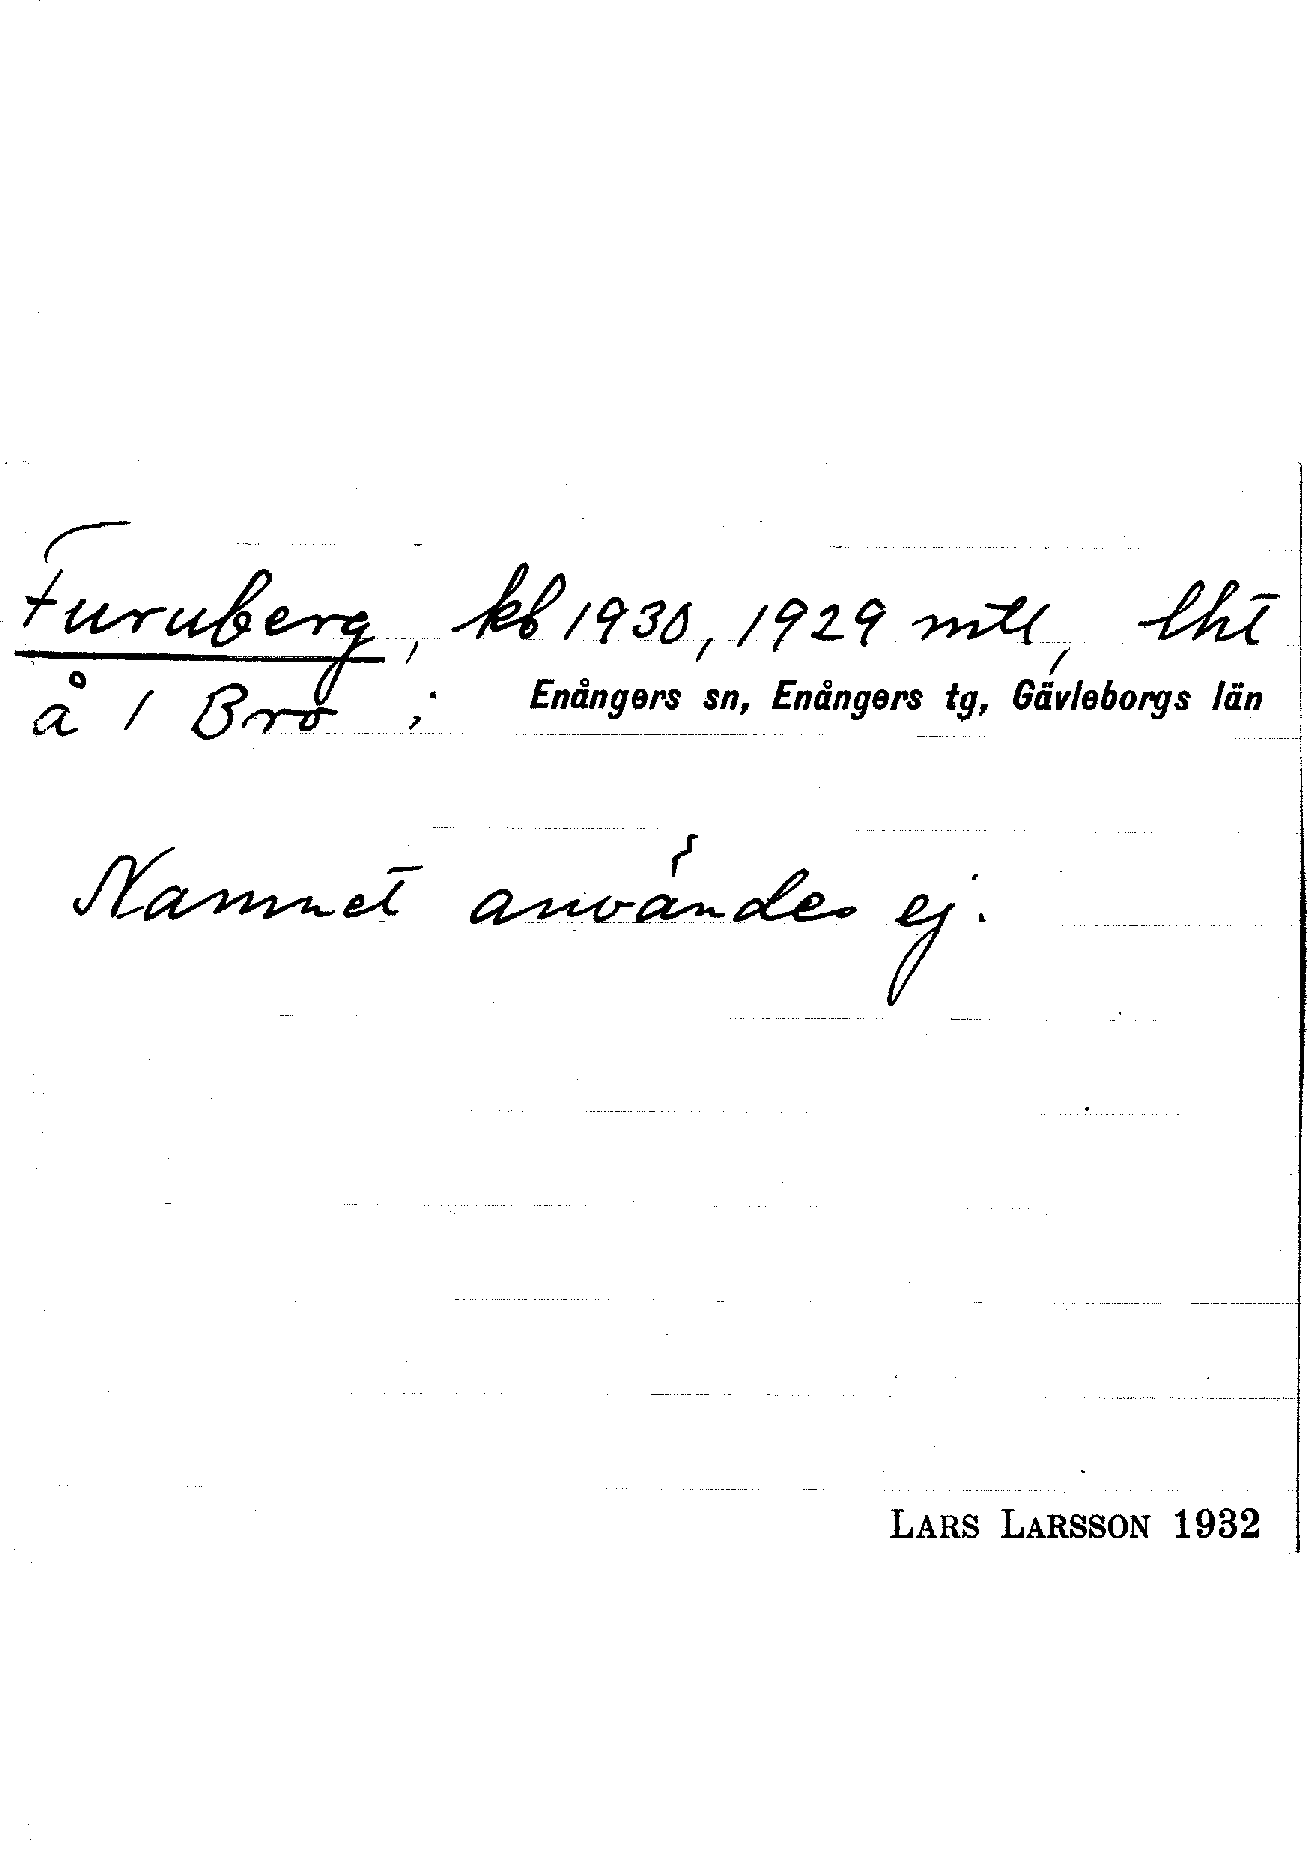 Furuberg, kb 1930, 1929 mtl, lht
å 1 Bro ; Enångers sn, Enångers tg, Gävleborgs län
Namnet användes ej.
LARS LARSSON 1932